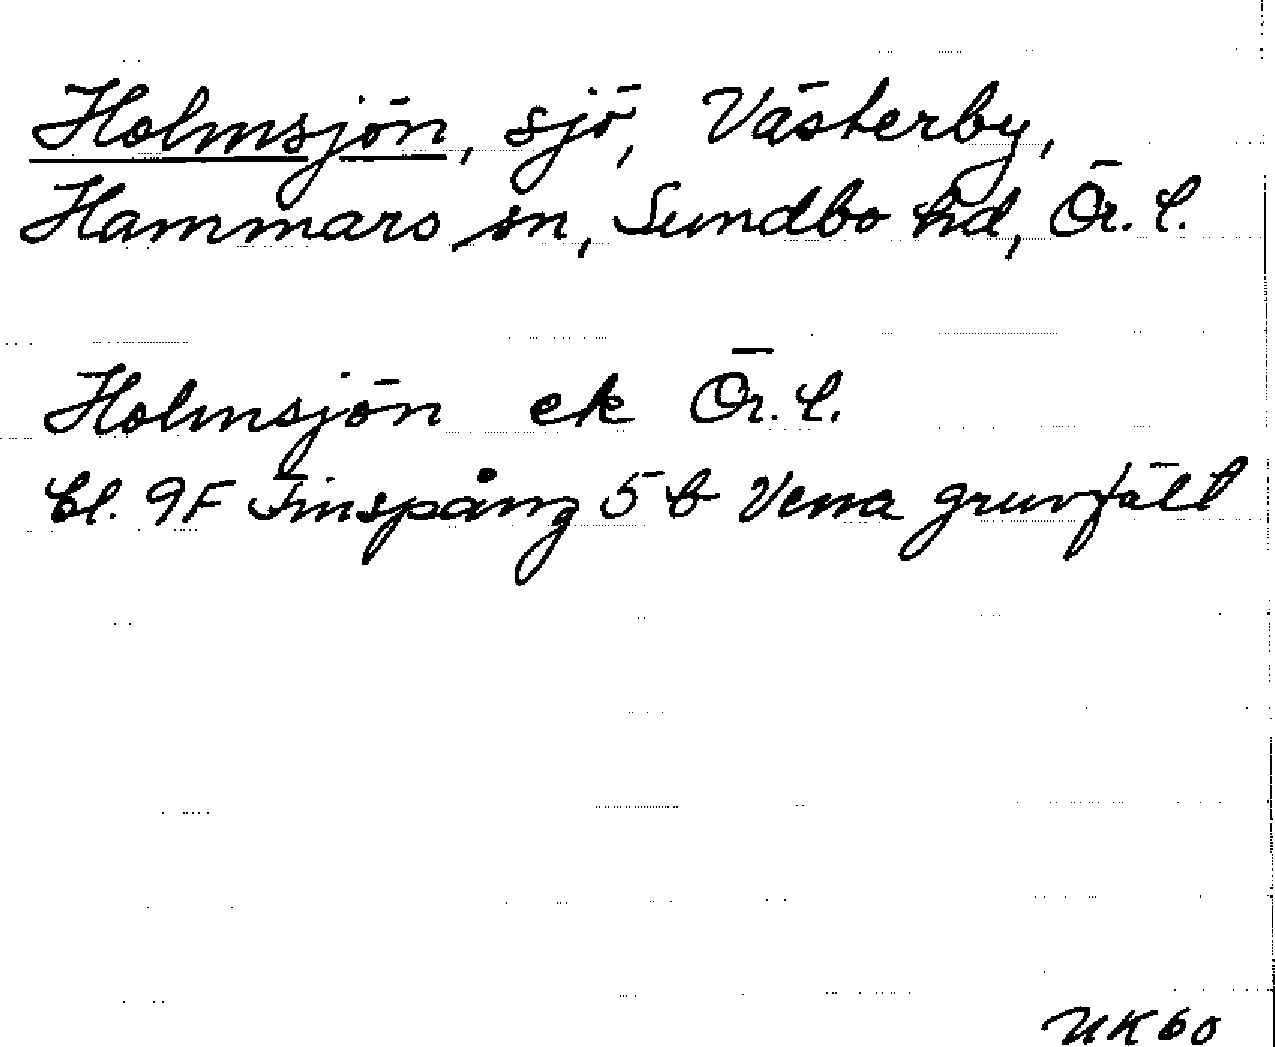 Holmsjön, sjö, Västerby,
Hammars sn, Sundbo hd, Ör. l.
Holmsjön ek Ör. l.
bl. 9F Finspång 5 b Vena gruvfält
UK60